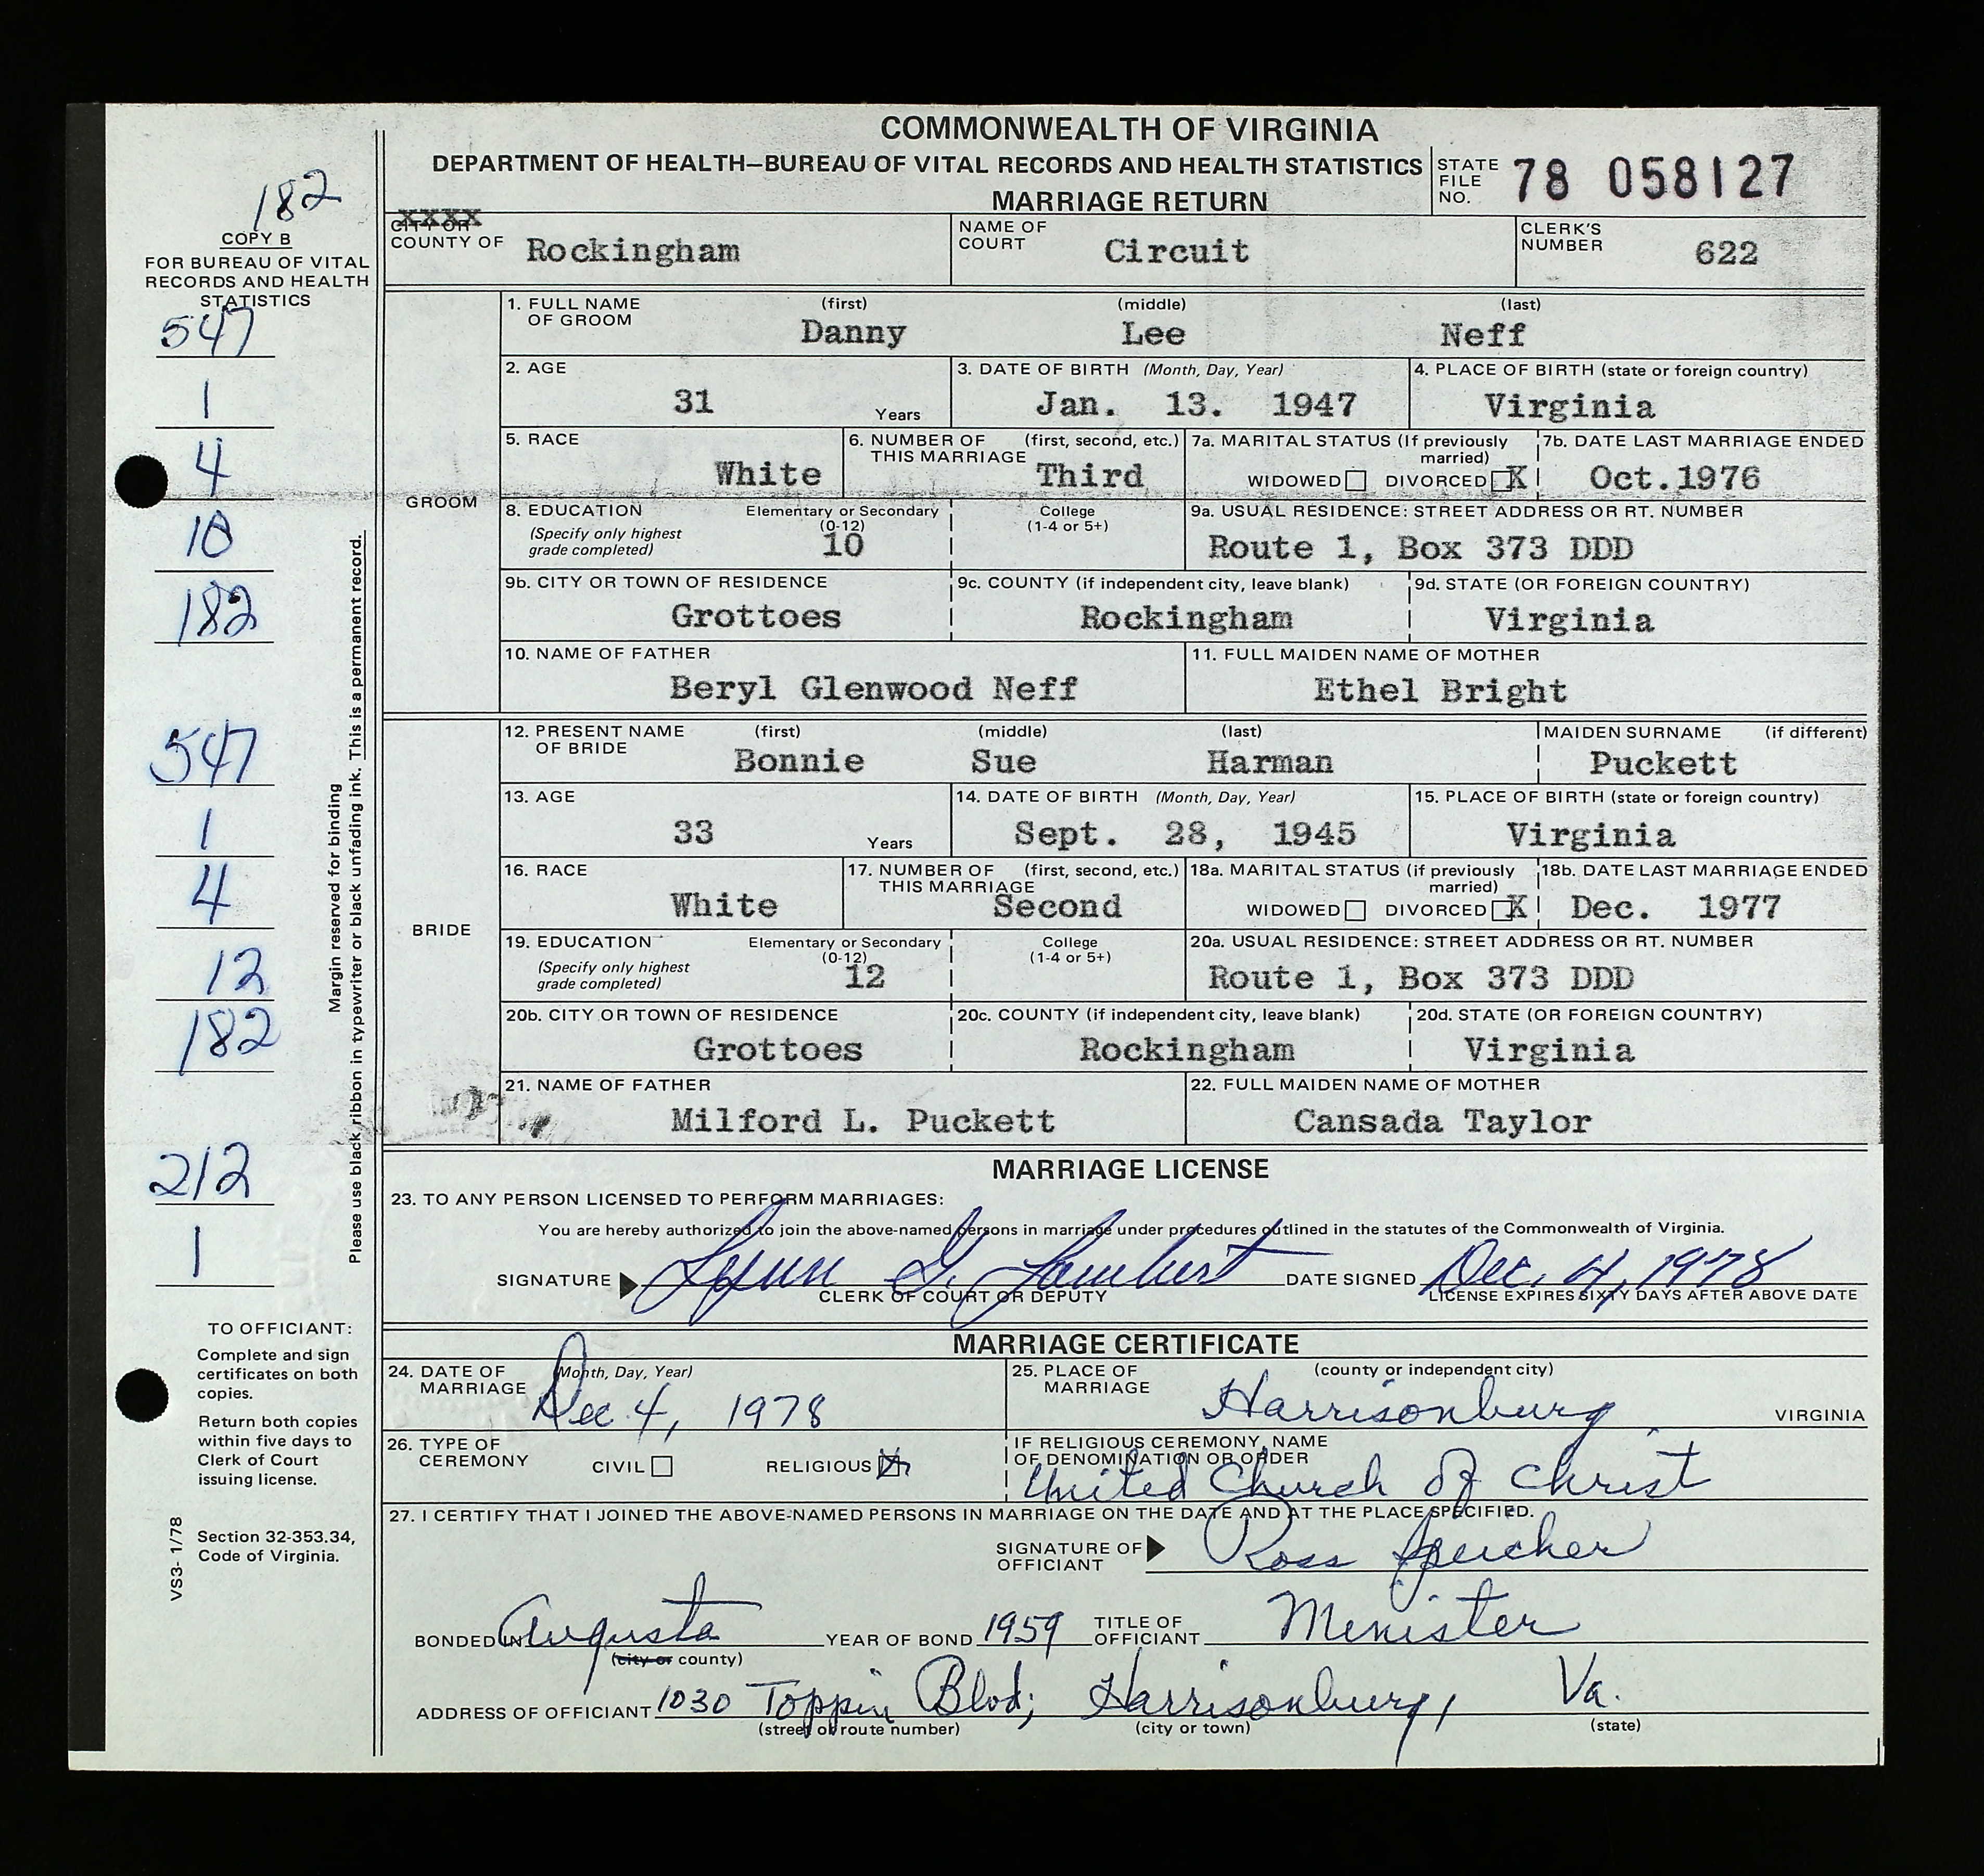 COMMONWEALTH OF VIRGINIA
DEPARTMENT OF HEALTH—BUREAU OF VITAL RECORDS AND HEALTH STATISTICS
MARRIAGE RETURN
STATE FILE NO. 78 058127
182
COPY B
FOR BUREAU OF VITAL
RECORDS AND HEALTH
STATISTICS
547
1
4
10
182
547
1
4
12
182
212
1
Margin reserved for binding
Please use black ribbon in typewriter or black unfading ink. This is a permanent record.
TO OFFICIANT:
Complete and sign
certificates on both
copies.
Return both copies
within five days to
Clerk of Court
issuing license.
Section 32-353.34,
Code of Virginia.
VS3- 1/78
XXXX
CITY OR
COUNTY OF Rockingham
NAME OF COURT Circuit
CLERK'S NUMBER 622
GROOM
1. FULL NAME OF GROOM (first) (middle) (last)
Danny Lee Neff
2. AGE 31 Years
3. DATE OF BIRTH (Month, Day, Year) Jan. 13. 1947
4. PLACE OF BIRTH (state or foreign country) Virginia
5. RACE White
6. NUMBER OF THIS MARRIAGE (first, second, etc.) Third
7a. MARITAL STATUS (If previously married) WIDOWED DIVORCED X
7b. DATE LAST MARRIAGE ENDED Oct.1976
8. EDUCATION (Specify only highest grade completed) Elementary or Secondary (0-12) 10 College (1-4 or 5+)
9a. USUAL RESIDENCE: STREET ADDRESS OR RT. NUMBER Route 1, Box 373 DDD
9b. CITY OR TOWN OF RESIDENCE Grottoes
9c. COUNTY (if independent city, leave blank) Rockingham
9d. STATE (OR FOREIGN COUNTRY) Virginia
10. NAME OF FATHER Beryl Glenwood Neff
11. FULL MAIDEN NAME OF MOTHER Ethel Bright
BRIDE
12. PRESENT NAME OF BRIDE (first) (middle) (last) MAIDEN SURNAME (if different)
Bonnie Sue Harman Puckett
13. AGE 33 Years
14. DATE OF BIRTH (Month, Day, Year) Sept. 28, 1945
15. PLACE OF BIRTH (state or foreign country) Virginia
16. RACE White
17. NUMBER OF THIS MARRIAGE (first, second, etc.) Second
18a. MARITAL STATUS (if previously married) WIDOWED DIVORCED X
18b. DATE LAST MARRIAGE ENDED Dec. 1977
19. EDUCATION (Specify only highest grade completed) Elementary or Secondary (0-12) 12 College (1-4 or 5+)
20a. USUAL RESIDENCE: STREET ADDRESS OR RT. NUMBER Route 1, Box 373 DDD
20b. CITY OR TOWN OF RESIDENCE Grottoes
20c. COUNTY (if independent city, leave blank) Rockingham
20d. STATE (OR FOREIGN COUNTRY) Virginia
21. NAME OF FATHER Milford L. Puckett
22. FULL MAIDEN NAME OF MOTHER Cansada Taylor
MARRIAGE LICENSE
23. TO ANY PERSON LICENSED TO PERFORM MARRIAGES:
You are hereby authorized to join the above-named persons in marriage under procedures outlined in the statutes of the Commonwealth of Virginia.
SIGNATURE Lynn G. Lambert DATE SIGNED Dec. 4, 1978
CLERK OF COURT OR DEPUTY LICENSE EXPIRES SIXTY DAYS AFTER ABOVE DATE
MARRIAGE CERTIFICATE
24. DATE OF MARRIAGE (Month, Day, Year) Dec. 4, 1978
25. PLACE OF MARRIAGE (county or independent city) Harrisonburg VIRGINIA
26. TYPE OF CEREMONY CIVIL RELIGIOUS X
IF RELIGIOUS CEREMONY, NAME OF DENOMINATION OR ORDER United Church of Christ
27. I CERTIFY THAT I JOINED THE ABOVE-NAMED PERSONS IN MARRIAGE ON THE DATE AND AT THE PLACE SPECIFIED.
SIGNATURE OF OFFICIANT Ross Speicher
BONDED IN Augusta YEAR OF BOND 1959 TITLE OF OFFICIANT Minister
(city or county)
ADDRESS OF OFFICIANT 1030 Toppin Blvd; Harrisonburg, Va.
(street or route number) (city or town) (state)